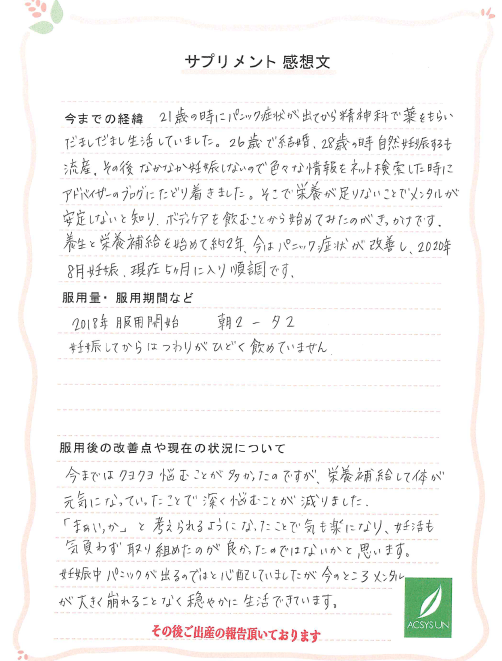 サプリメント 感想文
今までの経緯 21歳の時にパニック症状が出てから精神科で薬をもらい
だましだまし生活していました。26歳で結婚、28歳の時自然妊娠するも
流産、その後なかなか妊娠しないので色々な情報をネット検索した時に
アドバイザーのブログにたどり着きました。そこで栄養が足りないことでメンタルが
安定しないと知り、ボディケアを飲むことから始めてみたのがきっかけです。
養生と栄養補給を始めて約2年、今はパニック症状が改善し、2020年
8月妊娠、現在5ヶ月に入り順調です、
服用量・服用期間など
2018年 服用開始 朝2 - 夕2
妊娠してからはつわりがひどく飲めていません
服用後の改善点や現在の状況について
今まではクヨクヨ悩むことが多かったのですが、栄養補給して体が
元気になっていったことで深く悩むことが減りました.
「まぁいっか」と考えられるようになったことで気も楽になり、妊活も
気負わず取り組めたのが良かったのではないかと思います。
妊娠中パニックが出るのではと心配していましたが今のところメンタル
が大きく崩れることなく穏やかに生活できています。
ACSYSUN
その後ご出産の報告頂いております